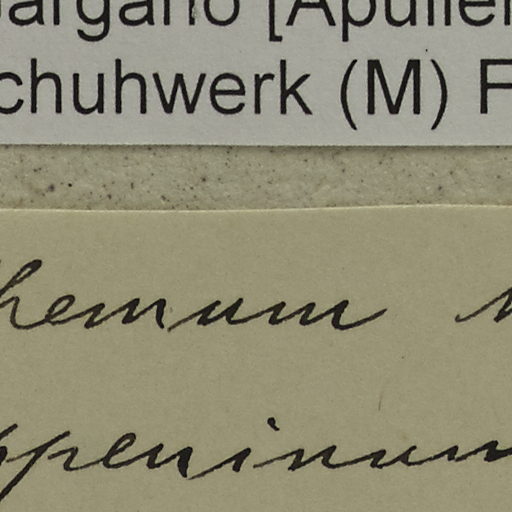 argano [Apulien
chuhwerk (M) F
hemum
ppeninum